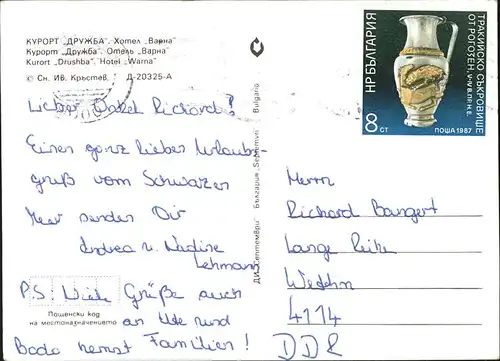 КУРОРТ „ДРУЖБА". Хотел „Варна"
Курорт „Дружба". Отель „Варна"
Kurort „Drushba". Hotel „Warna"
© Сн. Ив. Кръстев. Д-20325-А
Lieber Onkel Richard!
Einen ganz lieben Urlaubs-
gruß vom Schwarzen
Meer senden Dir
Andrea u. Nadine
Lehmann
P.S: Viele Grüße auch
an Ute und
Bodo nebst Familien!
Пощенски код
на местоназначението
ДИ „Септември" България „Septemvri" Bulgaria
НР БЪЛГАРИЯ
8 СТ
ПОЩА 1987
ТРАКИЙСКО СЪКРОВИЩЕ
ОТ РОГОЗЕН, V-IV В. ПР. Н. Е.
Herrn
Richard Bangert
Lange Reihe
4114
DDR